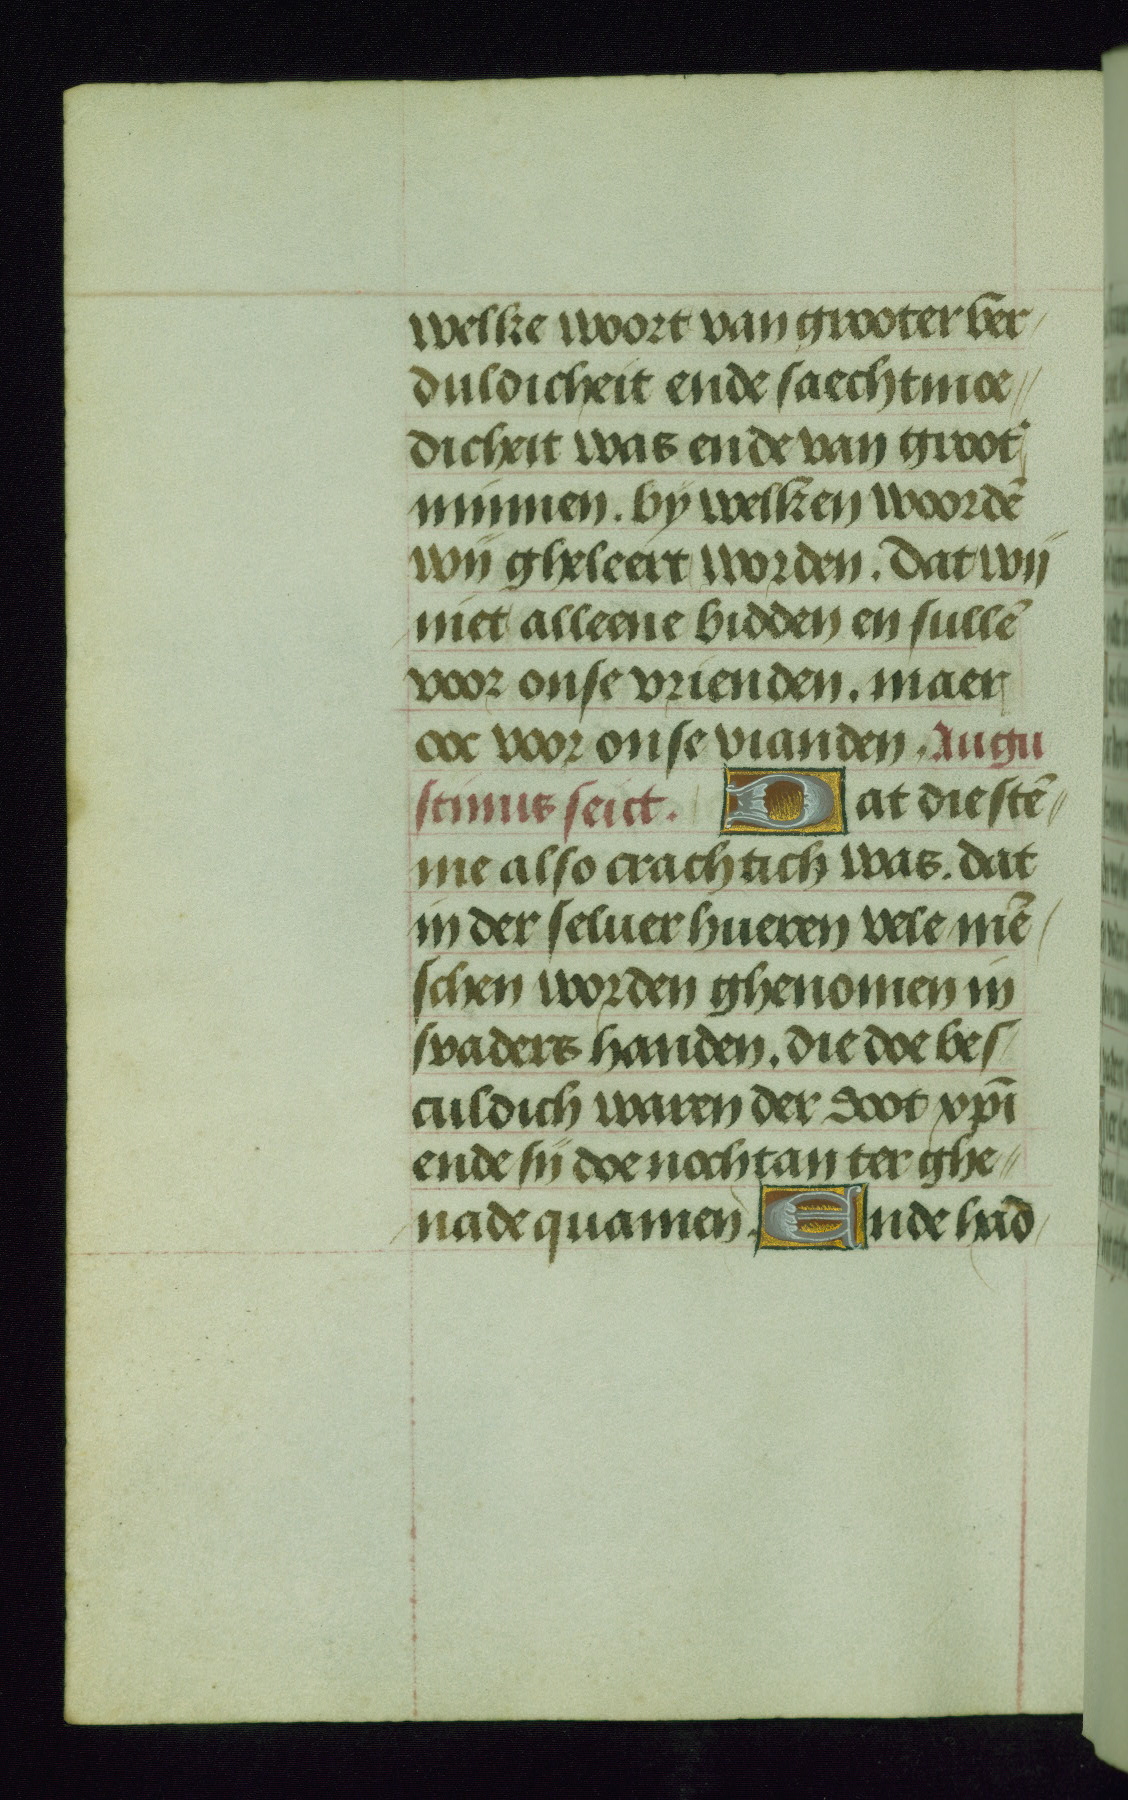 welke woort van grooter ver
duldicheit ende saechtmoe
dicheit was ende van groot'
minnen. by welken woordē
wij gheleert worden. Dat wij
niet alleene bidden en sullē
voor onse vrienden. maer
ooc voor onse vianden. Augu
stinus seict. Dat die stē
me also crachtich was. dat
in der seluer hueren vele mē
schen worden ghenomen in
svaders handen. die doe bes
culdich waren der doot xp̄i
ende sij doe nochtan ter ghe
nade quamen. Ende had